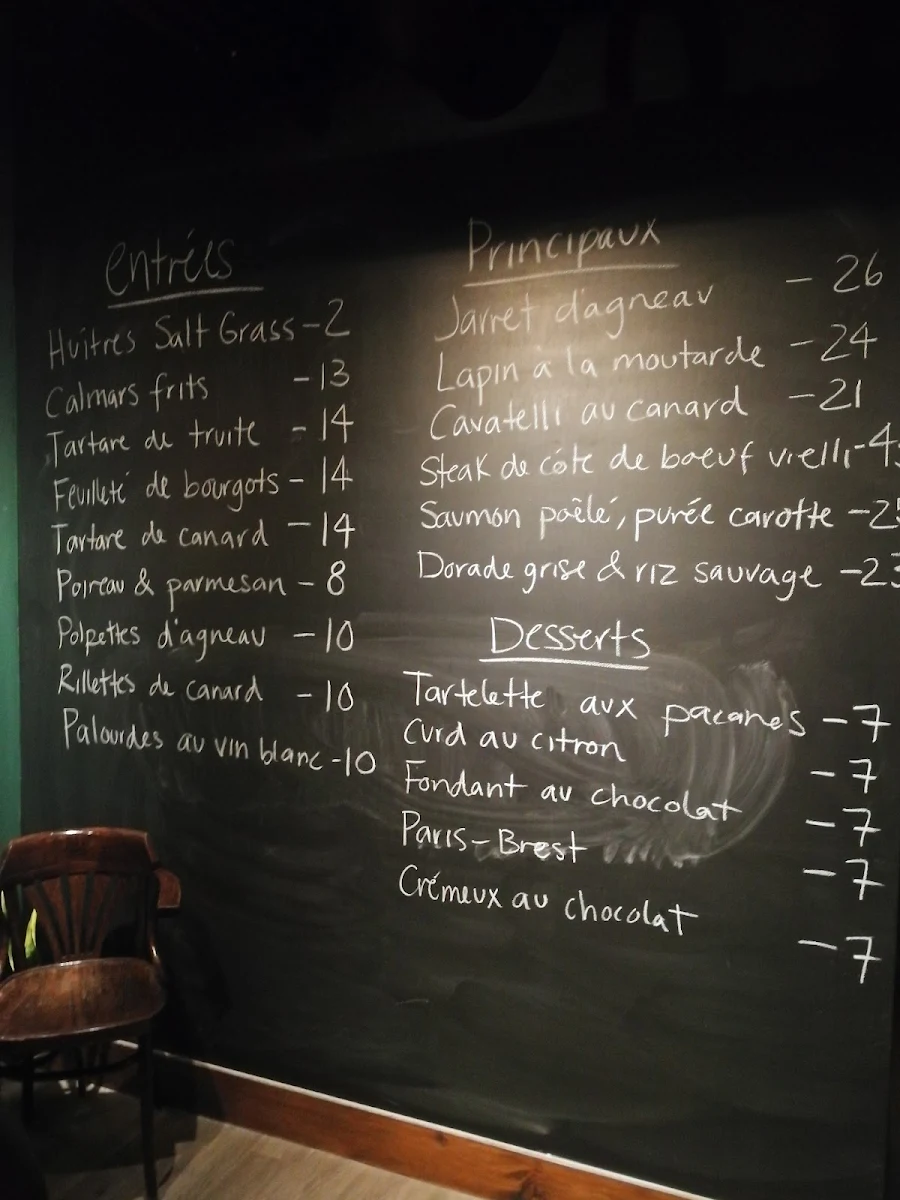 entrées
Huîtres Salt Grass - 2
Calmars frits - 13
Tartare de truite - 14
Feuilleté de bourgots - 14
Tartare de canard - 14
Poireau & parmesan - 8
Polpettes d'agneau - 10
Rillettes de canard - 10
Palourdes au vin blanc - 10
Principaux
Jarret d'agneau - 26
Lapin à la moutarde - 24
Cavatelli au canard - 21
Steak de côte de boeuf vielli - 4
Saumon poêlé, purée carotte - 25
Dorade grise & riz sauvage - 23
Desserts
Tartelette aux pacanes - 7
Curd au citron - 7
Fondant au chocolat - 7
Paris-Brest - 7
Crémeux au chocolat - 7